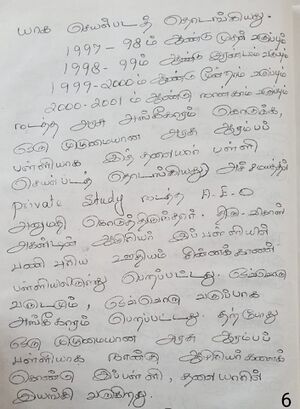 யாக செயல்படத் தொடங்கியது.
1997-98ம் ஆண்டு முதல் வகுப்பும்
1998-99ம் ஆண்டு இரண்டாம் வகுப்பும்
1999-2000ம் ஆண்டு மூன்றாம் வகுப்பும்
2000-2001ம் ஆண்டு நான்காம் வகுப்பும்
நடத்த அரசு அங்கீகாரம் கொடுக்க,
ஒரு முழுமையான அரசு ஆரம்பப்
பள்ளியாக இத் தனியார் பள்ளி
செயல்படத் தொடங்கியது அச் சமயத்தில்
private Study நடத்த A.E.O
அனுமதி கொடுத்திருந்தார்.
ஆசிரியர் இப் பள்ளியில்
பணி புரிய ஊதியம்
பள்ளியிலிருந்து பெறப்பட்டது. ஒவ்வொரு
வருடமும், ஒவ்வொரு வகுப்பாக
அங்கீகாரம் பெறப்பட்டது. தற்போது
ஒரு முழுமையான அரசு ஆரம்ப
பள்ளியாக நான்கு ஆசிரியர்களைக்
கொண்டு இப்பள்ளி, தனியாகில்
இயங்கி வருகிறது.
6